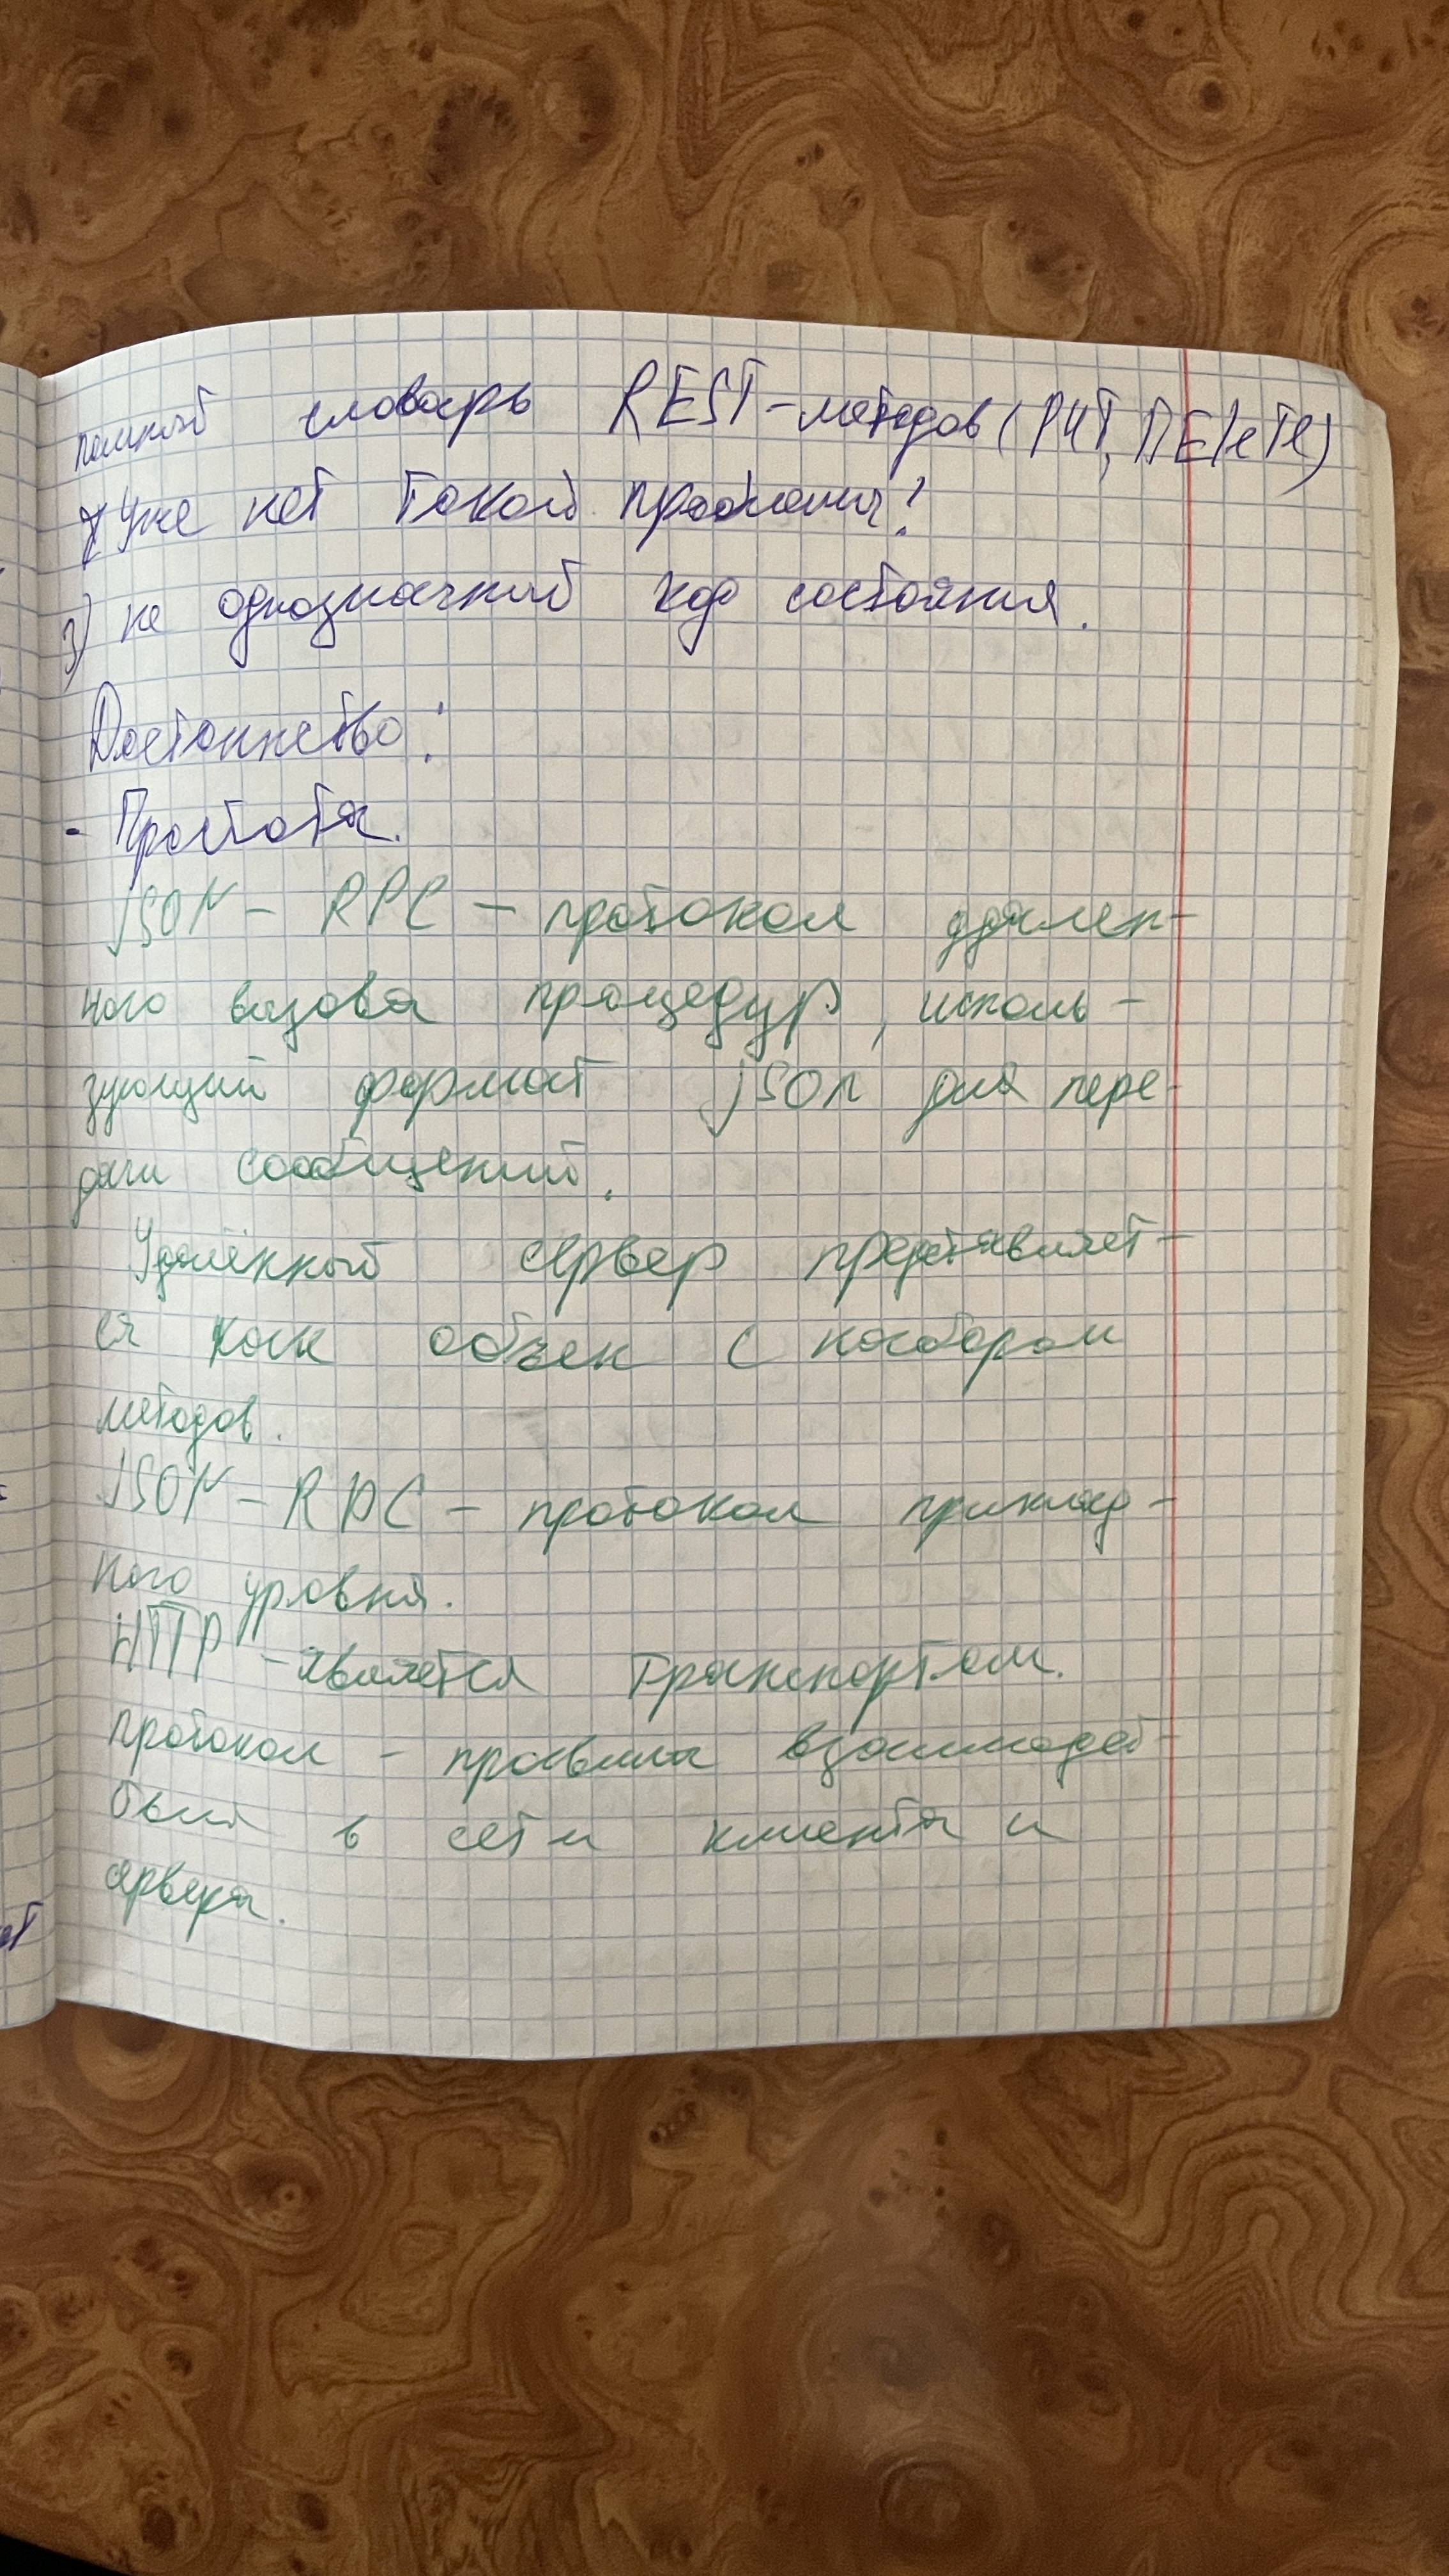 полный словарь REST-методов (PUT, DEleTe)
Уже нет такой проблемы!
3) не однозначный код состояния.
Достоинство:
- Простота.
JSON - RPC - протокол удален-
ного вызова процедур, исполь-
зующий формат jSOn для пере-
дачи сообщений.
Удалённый сервер представляет-
ся как объек с набором
методов.
JSON - RPC - протокол приклад-
ного уровня.
HTTP - является транспортом.
протокол - правила взаимодей-
ствия в сети клиента и
сервера.